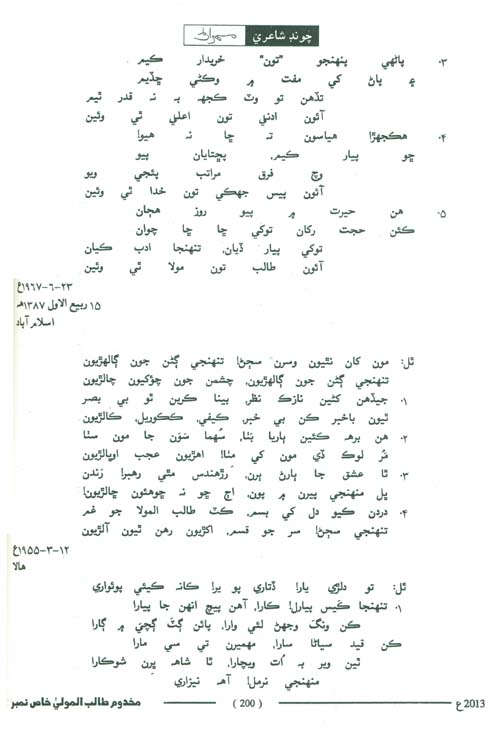 چونڊ شاعري مهراڻ
۳. پاڻهي پنهنجو "تون" خريدار ڪيم
۽ پاڻ کي مفت ۾ وڪڻي ڇڏيم
تڏهن تو وٽ ڪجهہ بہ نہ قدر ٿيم
آئون ادنيٰ تون اعليٰ ٿي وئين
۴. هڪجهڙا هياسون تہ ڇا نہ هيوا
ڇو پيار ڪيم، پڇتايان پيو
وچ فرق مراتب پئجي ويو
آئون پيس جهڪي تون خدا ٿي وئين
۵. هن حيرت ۾ پيو روز هڄان
ڪئن حجت رکان توکي ڇا ڇا چوان
توکي پيار ڏيان، تنهنجا ادب ڪيان
آئون طالب تون مولا ٿي وئين
۲۳-۶-۱۹۶۷ع
۱۵ ربيع الاول ۱۳۸۷هہ
اسلام آباد
ٿل: مون کان نٿيون وسرن سڄڻ! تنهنجي ڳڻن جون ڳالهڙيون
تنهنجي ڳڻن جون ڳالهڙيون، چشمن جون چؤکيون چالڙيون
۱. جيڏهن کڻين نازڪ نظر، بينا ڪرين ٿو بي بصر
ٿيون باخبر ڪن بي خبر، ڪيفي، ڪڪوريل، ڪالڙيون
۲. هن برهہ ڪئين ٻاريا بَنا، سُهما سَوَن جا مون سنا
مُر لوڪ ڏي مون کي منا! اهڙيون عجب اوڀالڙيون
۳. ٿا عشق جا ٻارڻ ٻرن، رَڙهندس مٿي رهبر! رَندن
پل منهنجي پيرن ۾ پون، اڄ ڇو نہ ڇوهئون ڇالڙيون!
۴. دردن ڪيو دل کي بسم، ڪٽ طالب المولا جو غم
تنهنجي سڄڻ! سر جو قسم، اکڙيون رهن ٿيون آلڙيون
۱۲-۳-۱۹۵۵ع
هالا
ٿل: تو دلڙي يارا! ڏتاري پو يرا! ڪانہ ڪيئي پوئواري
۱. تنهنجا ڪَيس پيارل! ڪارا، آهن پيچ انهن جا پيارا
ڪن ونگَ وجهڻ لئي وارا، پائن ڳٽَ ڳچيءَ ۾ ڳارا
ڪن قيد سياڻا سارا، مهميرن تي سي مارا
ٿين وير بہ اُت ويچارا، ٿا شاهہ ڀرن شوڪارا
منهنجي نرمل! آهہ نيزاري
2013ع ( 200 ) مخدوم طالب الموليٰ خاص نمبر